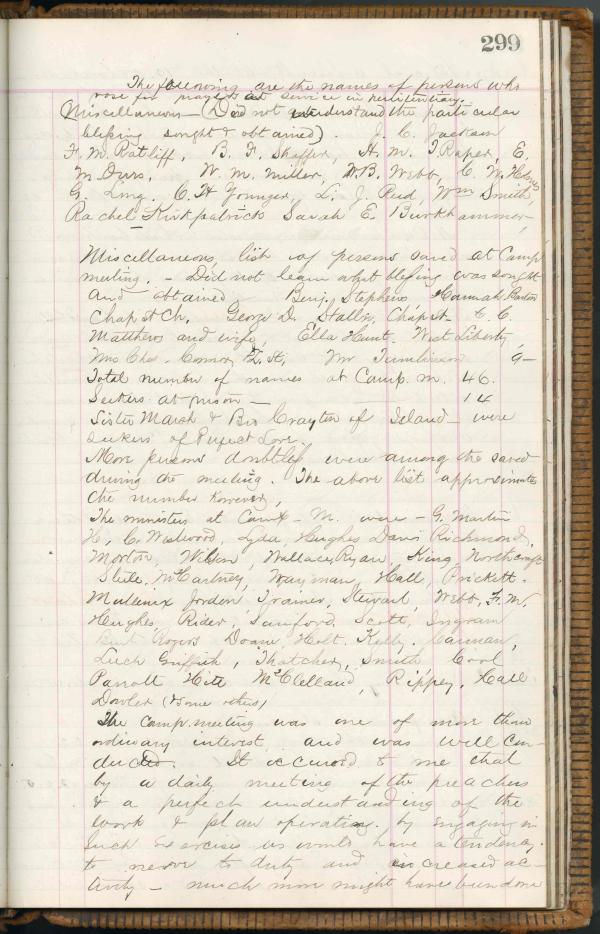 299
The following are the names of persons who
rose for prayer at service in penitentiary.
Miscellaneous — (Did not understand the particular
blessing sought & obtained). J. C. Jackson
F. M. Ratliff, B. F. Shaffer, H. M. T Raper, E.
M. W. M. Miller, W.B. Webb, C. W.
G. Long. C. H Younger, L. J. Reid, Wm Smith,
Rachel Kirkpatrick Sarah E. Burkhammer
Miscellaneous list of persons saved at Camp
meeting. — Did not learn what blessing was sought
and obtained Benj. Stephens, Hannah
Chap st Ch. George D. Staller, Chap st C. C.
Matthews and wife, Ella Hunt. West Liberty,
Mrs Chas. Connor, Wm Tumlinson 9—
Total number of names at Camp. m. 46.
Seekers at prison — 14
Sister Marsh & Bro Crayton of Island — were
seekers of Perfect Love.
More persons doubtless were among the saved
during the meeting. The above list approximates
the number however,
The ministers at Camp — M. were — G. Martin
H, C. Westwood, Lyda, Hughes Davis Richmond,
Morton, Wilson, Wallace, Ryan, King Northcraft
Steele, McCartney, Wayman, Hall, Prickett.
Mullenix Jordon, Trainer, Stewart, Webb, F. W.
Hughes, Rider, Sanford, Scott, Ingram
Rogers Doane, Holt. Kelly. Carman,
Leech Griffith, Thatcher, Smith Cool
Parrott Hite McClelland, Rippey, Hall
Dowler (& some others)
The Camp. meeting was one of more than
ordinary interest and was well con-
ducted. It occurred to me that
by a daily meeting of the preachers
& a perfect understanding of the
work & plan operating. by engaging in
such exercises as would have a tendency
to nerve to duty and increased ac-
tivity — much more might have been done